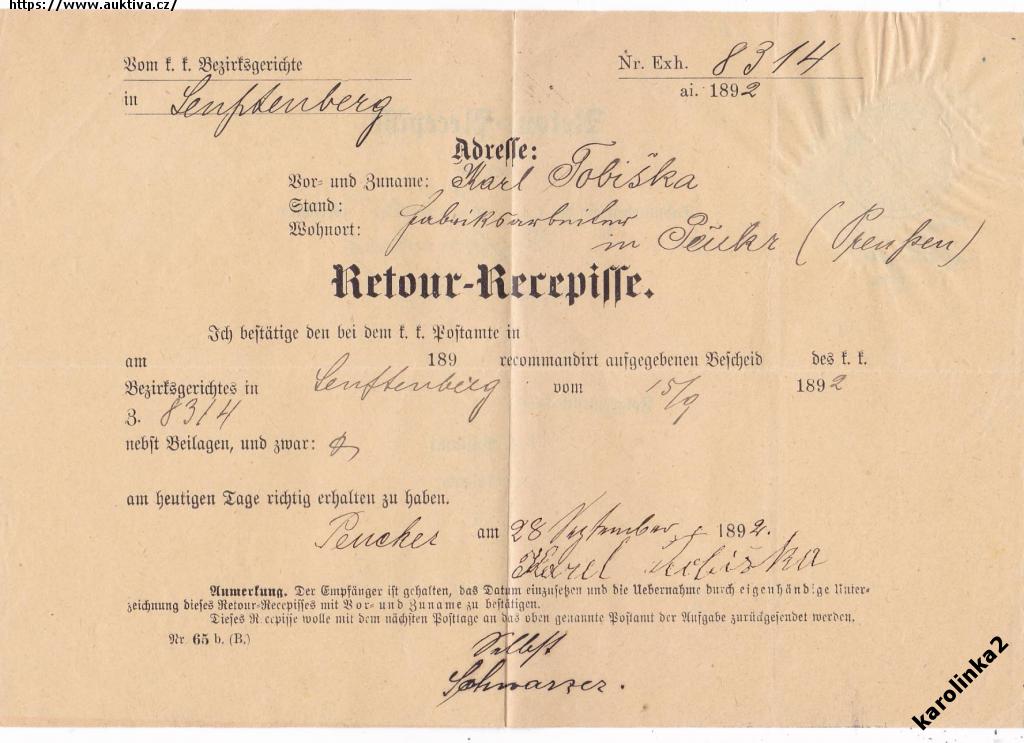 https://www.auktiva.cz/
Vom k. k. Bezirksgerichte
in Senftenberg
Nr. Exh. 8314
ai. 1892
Adresse:
Vor- und Zuname: Karl Tobiška
Stand: Fabriksarbeiter
Wohnort: in Peukr (Preußen)
Retour-Recepisse.
Ich bestätige den bei dem k. k. Postamte in
am 189 recommandirt aufgegebenen Bescheid des k. k.
Bezirksgerichtes in Senftenberg vom 15/9 1892
Z. 8314
nebst Beilagen, und zwar:
am heutigen Tage richtig erhalten zu haben.
Peucker am 28 September 1892.
Karel Tobiška
Anmerkung. Der Empfänger ist gehalten, das Datum einzusetzen und die Uebernahme durch eigenhändige Unter-
zeichnung dieses Retour-Recepisses mit Vor- und Zuname zu bestätigen.
Dieses Recepisse wolle mit dem nächsten Posttage an das oben genannte Postamt der Aufgabe zurückgesendet werden.
Nr. 65 b. (B.)
Selbst
Schwarzer.
karolinka2